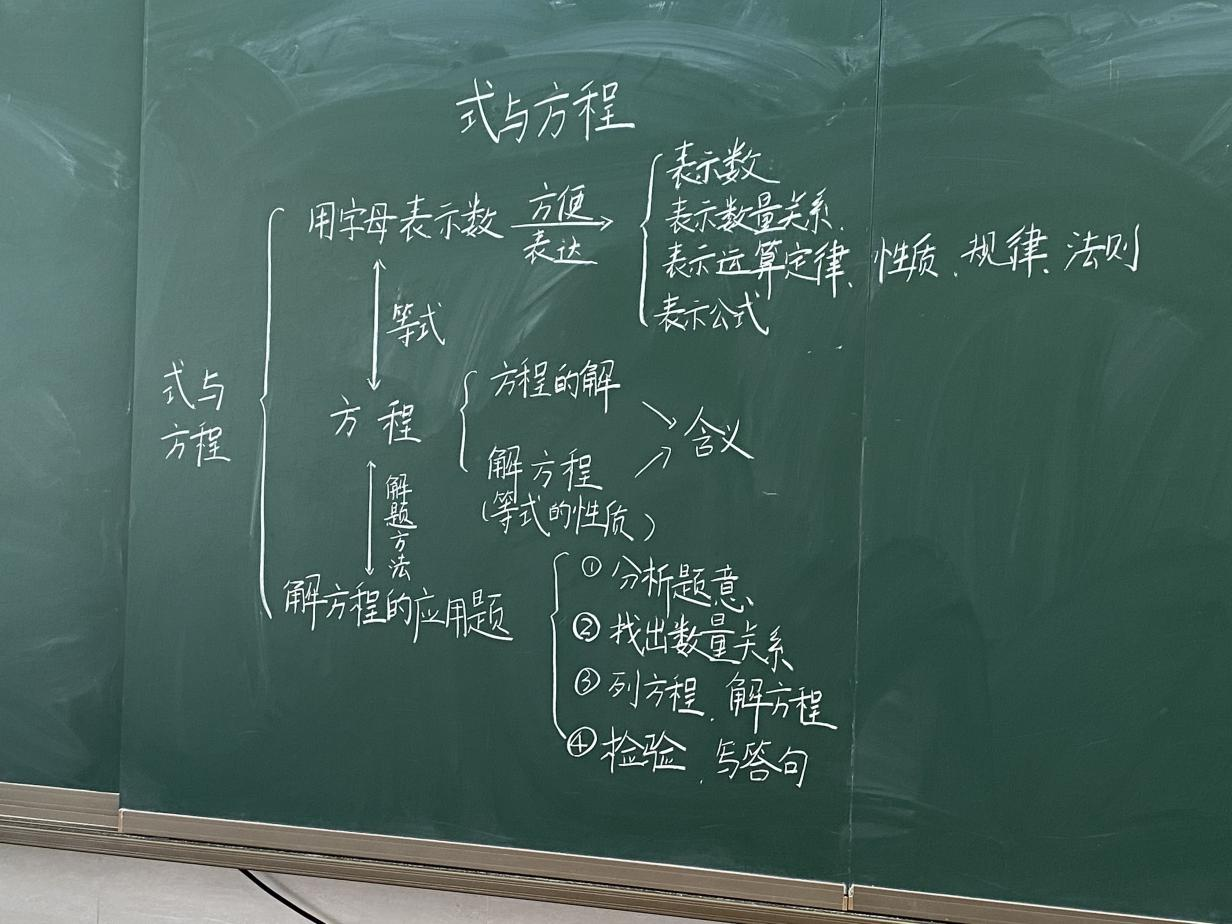 式与方程
用字母表示数
方便
表达
表示数
表示数量关系.
表示运算定律、性质、规律、法则
表示公式
等式
式与
方程
方程
方程的解
解方程
(等式的性质)
含义
解题方法
解方程的应用题
① 分析题意、
② 找出数量关系
③ 列方程、解方程
④ 检验、写答句